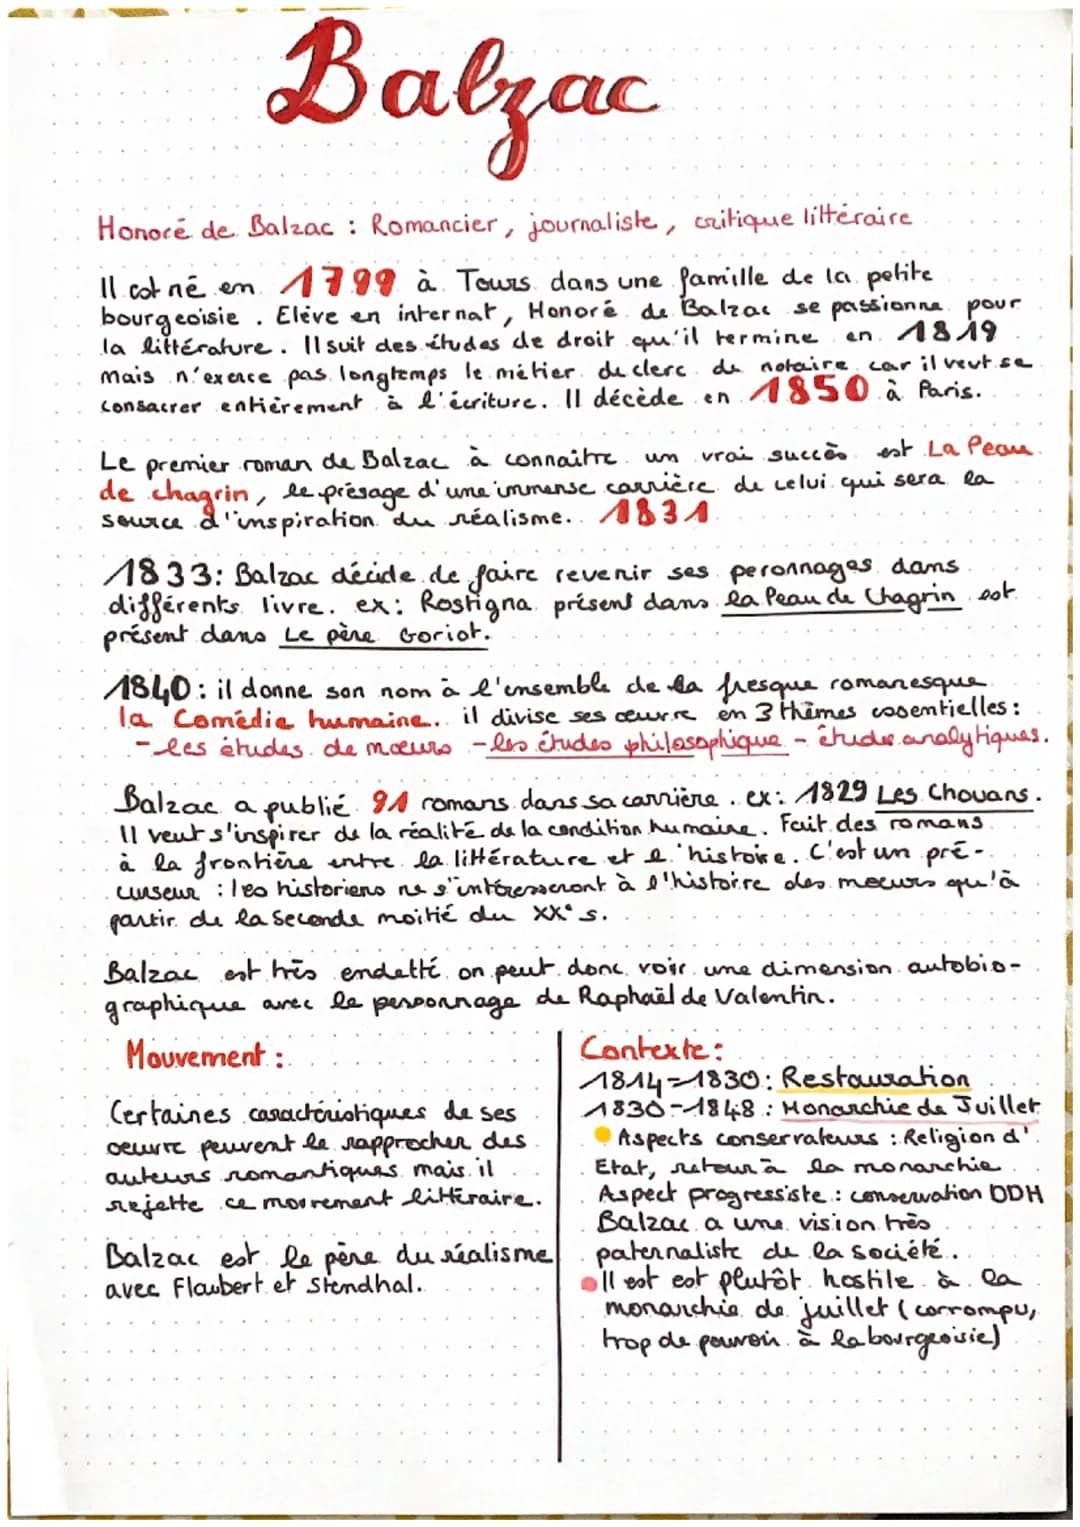 Balzac
Honoré de Balzac : Romancier, journaliste, critique littéraire
Il est né en 1799 à Tours dans une famille de la petite
bourgeoisie. Elève en internat, Honoré de Balzac se passionne pour
la littérature. Il suit des études de droit qu'il termine en 1819
mais n'exerce pas longtemps le métier de clerc de notaire car il veut se
consacrer entièrement à l'écriture. Il décède en 1850 à Paris.
Le premier roman de Balzac à connaitre un vrai succès est La Peau
de chagrin, le présage d'une immense carrière de celui qui sera la
source d'inspiration du réalisme. 1831
1833: Balzac décide de faire revenir ses peronnages dans
différents livre. ex: Rostigna présent dans la Peau de Chagrin est
présent dans Le père Goriot.
1840: il donne son nom à l'ensemble de la fresque romanesque
la Comédie humaine. il divise ses œuvre en 3 thèmes essentielles:
- les études de mœurs - les études philosophique - études analytiques.
Balzac a publié 91 romans dans sa carrière. ex: 1829 Les Chouans.
Il veut s'inspirer de la réalité de la condition humaine. Fait des romans
à la frontière entre la littérature et l'histoire. C'est un pré-
curseur : les historiens ne s'intéresseront à l'histoire des mœurs qu'à
partir de la seconde moitié du XX° s.
Balzac est très endetté on peut donc voir une dimension autobio-
graphique avec le personnage de Raphaël de Valentin.
Mouvement :
Certaines caractéristiques de ses
oeuvre peuvent le rapprocher des
auteurs romantiques mais il
rejette ce mouvement littéraire.
Balzac est le père du réalisme
avec Flaubert et Stendhal.
Contexte :
1814-1830: Restauration
1830-1848: Monarchie de Juillet
Aspects conservateurs : Religion d'
Etat, retour à la monarchie
Aspect progressiste : conservation DDH
Balzac a une vision très
paternaliste de la société.
Il est est plutôt hostile à la
monarchie de juillet (corrompu,
trop de pouvoir à la bourgeoisie)